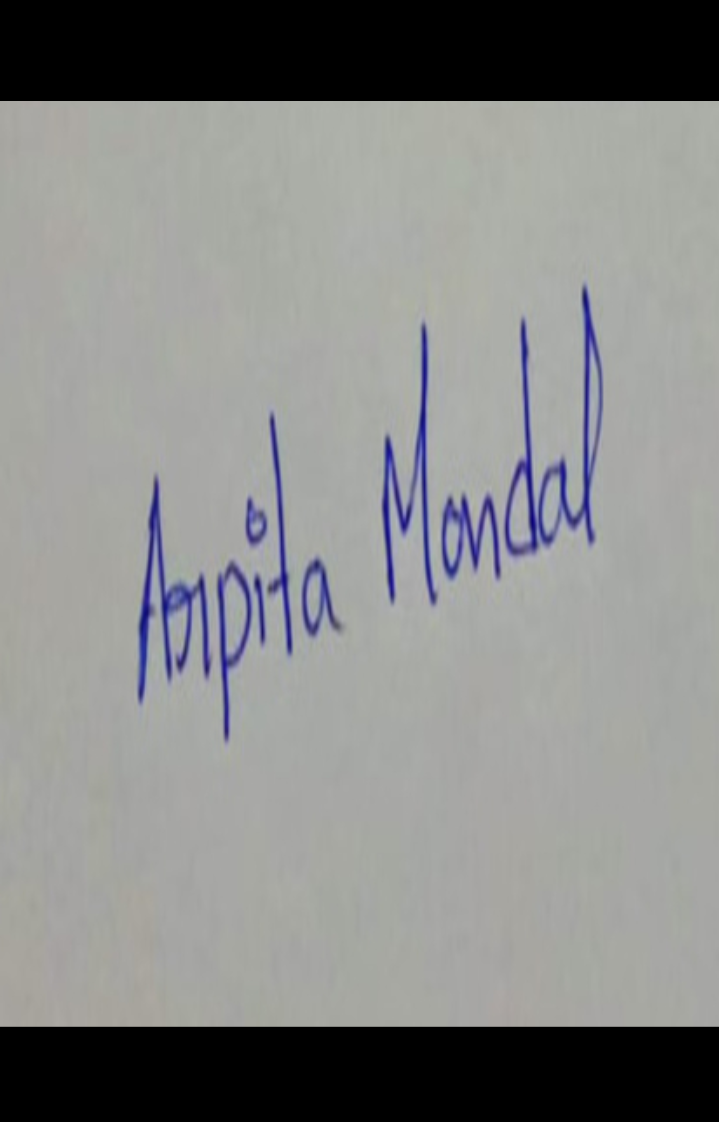 Arpita Mondal